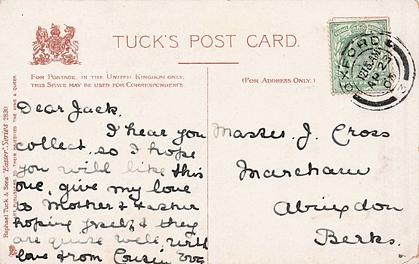 TUCK'S POST CARD.
FOR POSTAGE, IN THE UNITED KINGDOM ONLY,
THIS SPACE MAY BE USED FOR CORRESPONDENCE.
(FOR ADDRESS ONLY.)
Raphael Tuck & Sons' "Easter" Series 2830
OXFORD
Dear Jack,
I hear you
collect, so I hope
you will like this
one, give my love
to Mother & Father
hoping yself & they
are quite well, with
love from Cousin
Master J. Cross
Marcham
Abingdon
Berks.